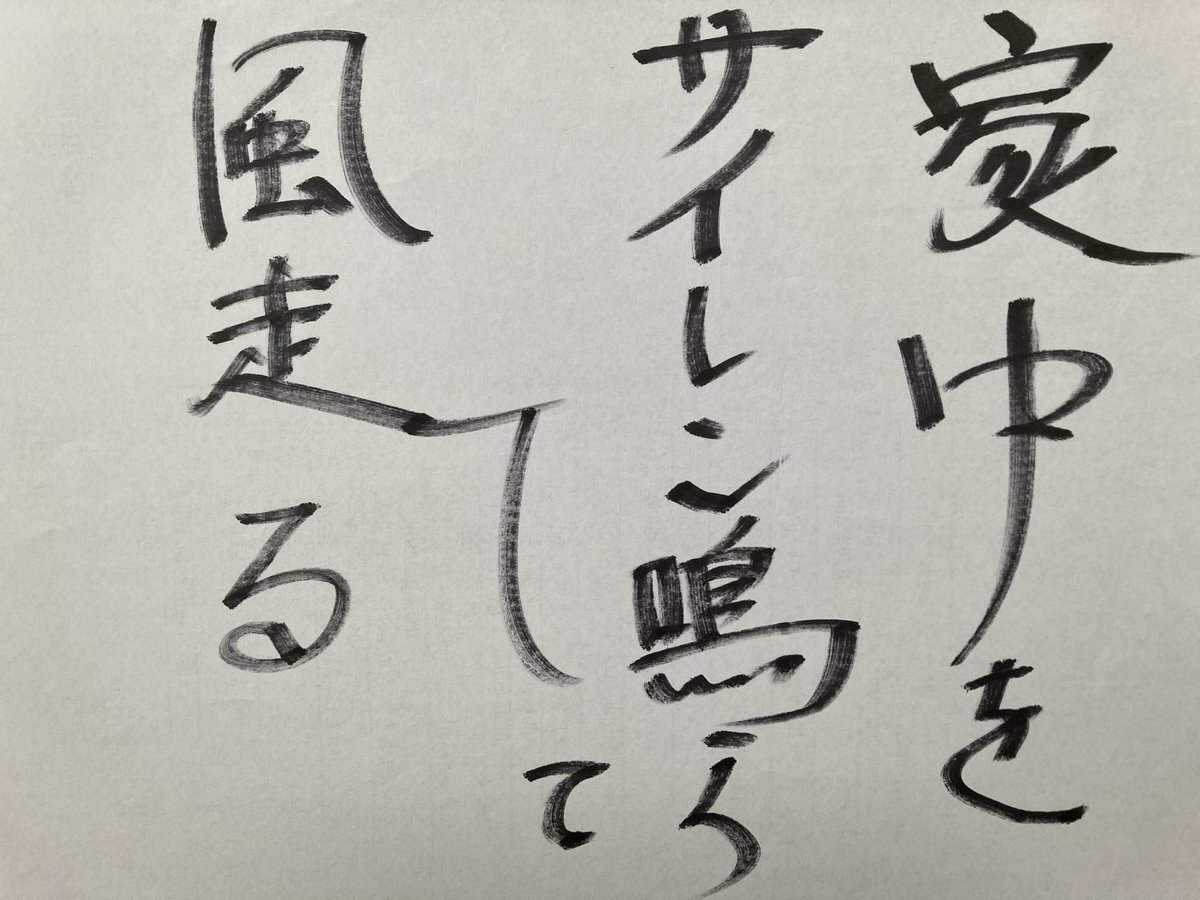 家中を
サイレン鳴ら
して
風走る